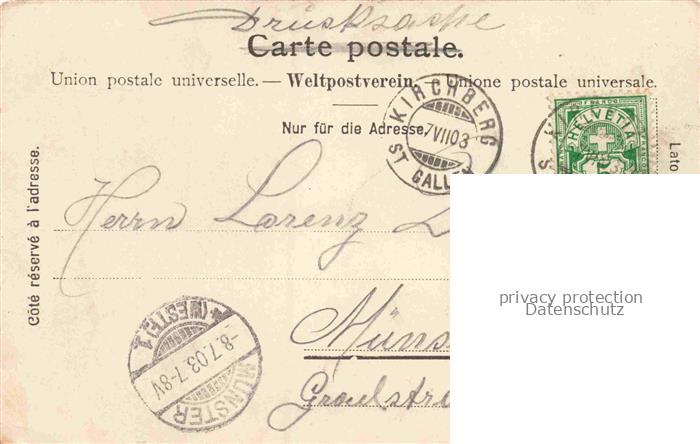 Drucksache
Carte postale.
Union postale universelle. — Weltpostverein. — Unione postale universale.
Nur für die Adresse.
KIRCHBERG
7 VII 03
ST GALLEN
HELVETIA
Côté réservé à l'adresse.
Lato
Herrn Lorenz
Münster
(WESTF.) 1
-8.7.03.7-8V
MÜNSTER
privacy protection
Datenschutz